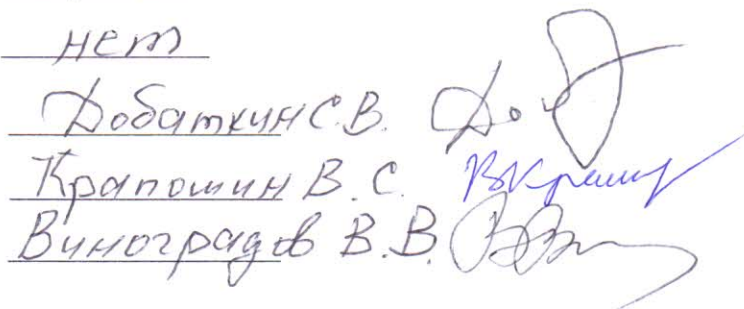 нет
Добаткин С.В.
Крапошин В.С.
Виноградов В.В.